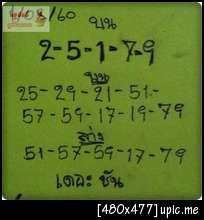 /60
บน
2-5-1-7-9
บน
25-29-21-51-
57-59-17-19-79
ล่าง
51-57-59-17-79
เดอะ ซัน
[480x477] upic.me